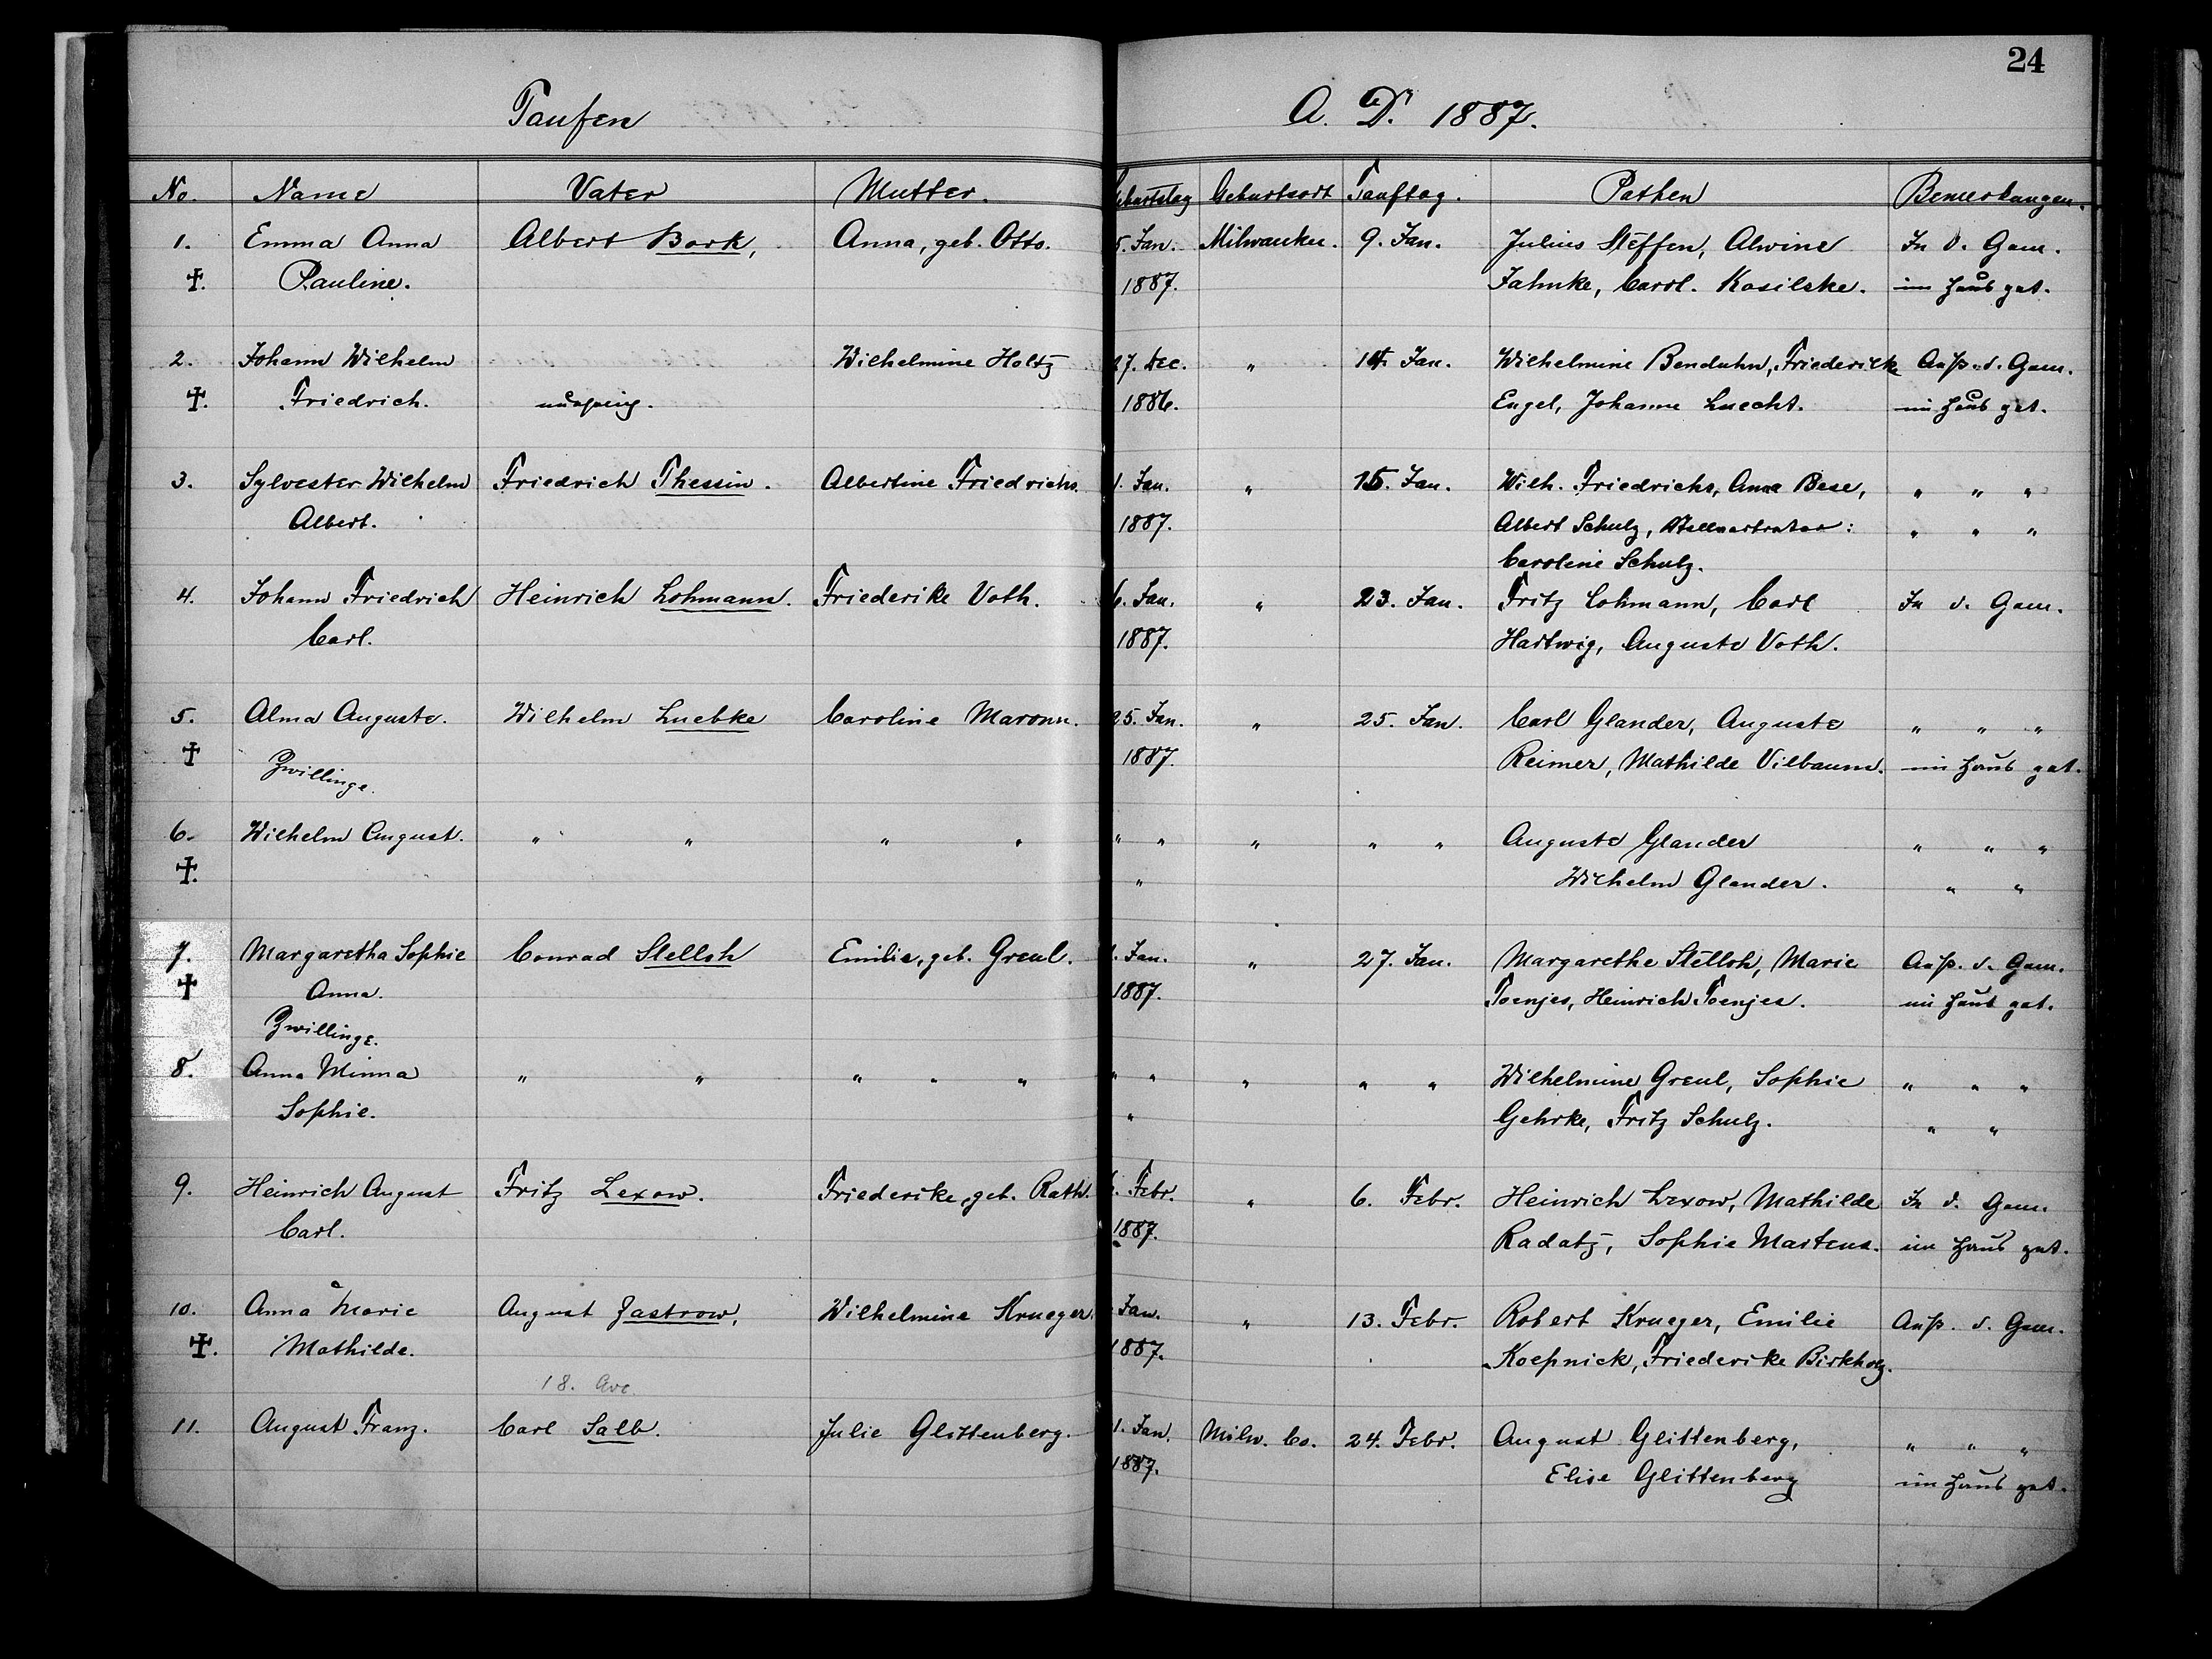 24
Taufen A. D. 1887.
No. Name Vater Mutter. Geburtstag Geburtsort Tauftag. Pathen Bemerkungen.
1. Emma Anna Albert Bork, Anna, geb. Otto. 5. Jan. Milwaukee. 9. Jan. Julius Steffen, Alwine In d. Gem.
Pauline. 1887. Jahnke, Carol. Kosilske. im Haus get.
2. Johann Wilhelm Wilhelmine Holtz 27. Dec. " 14. Jan. Wilhelmine Benduhn, Friederike Auß. d. Gem.
Friedrich. 1886. Engel, Johanne Luecht. im Haus get.
3. Sylvester Wilhelm Friedrich Thessin. Albertine Friedrichs. 1. Jan. " 15. Jan. Wilh. Friedrichs, Anna Bese, " " "
Albert. 1887. Albert Schulz, Stellvertreter: " " "
Caroline Schulz.
4. Johann Friedrich Heinrich Lohmann. Friederike Voth. 6. Jan. " 23. Jan. Fritz Lohmann, Carl In d. Gem.
Carl. 1887. Hartwig, Auguste Voth.
5. Alma Auguste. Wilhelm Luebke Caroline Maronn. 25. Jan. " 25. Jan. Carl Glander, Auguste " " "
Zwillinge. 1887. Reimer, Mathilde Vilbaum. im Haus get.
6. Wilhelm August. " " " " " " " " " Auguste Glander " " "
" Wilhelm Glander. " "
7. Margaretha Sophie Conrad Stelloh Emilie, geb. Greul. Jan. " 27. Jan. Margarethe Stelloh, Marie Auß. d. Gem.
Anna. 1887. Toenjes, Heinrich Toenjes. im Haus get.
Zwillinge.
8. Anna Minna " " " " " " " " " " Wilhelmine Greul, Sophie " " "
Sophie. " Gehrke, Fritz Schulz. " "
9. Heinrich August Fritz Lexow. Friederike, geb. Rath. Febr. " 6. Febr. Heinrich Lexow, Mathilde In d. Gem.
Carl. 1887. Radatz, Sophie Martens. im Haus get.
10. Anna Marie August Zastrow, Wilhelmine Krueger. Jan. " 13. Febr. Robert Krueger, Emilie Auß. d. Gem.
Mathilde. 1887. Koepnick, Friederike Birkholz.
18. Ave.
11. August Franz. Carl Salb. Julie Glittenberg. 1. Jan. Milw. Co. 24. Febr. August Glittenberg, " " "
1887. Elise Glittenberg im Haus get.